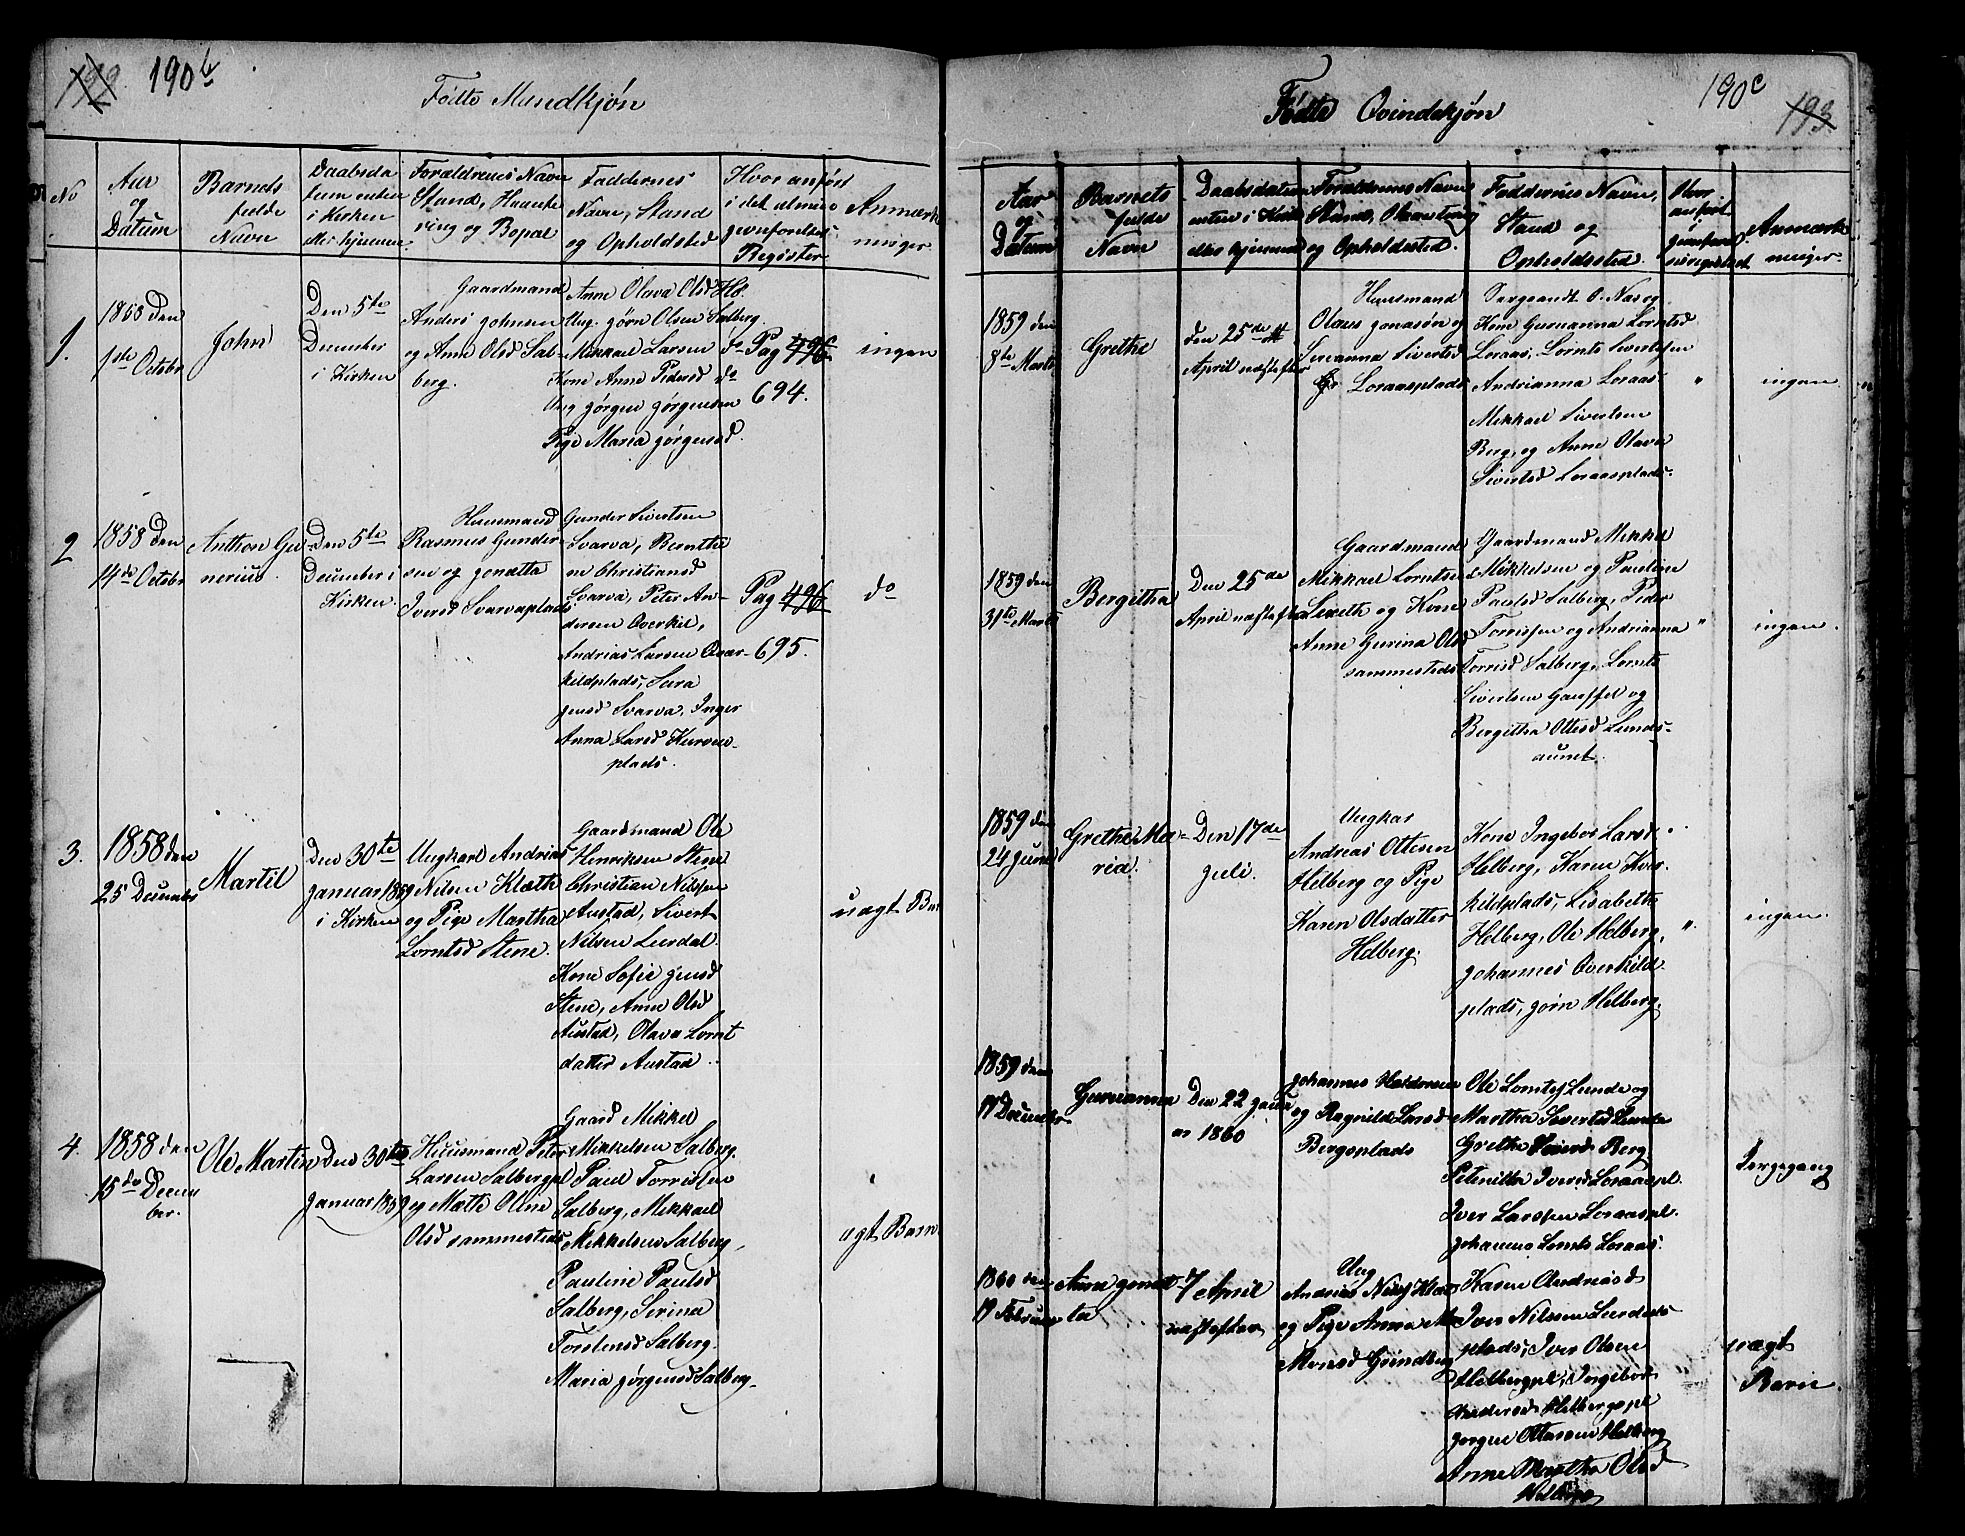 192 190b
Fødte Mandkjøn
No
Aar
og
Datum
Barnets
fulde
Navn
Daabsda
tum enten
i Kirken
eller hjemme
Forældrenes Navn
Stand, Haandte
ring og Bopæl
Faddernes
Navn, Stand
og Opholdsted
Hvor anført
i det almin
Register
Anmærk
ninger.
1.
1858 den
1ste Octobr
John
Den 5te
December
i Kirken
Gaardmand
Anders Johnsen
og Anne Olsd Sal-
berg.
Anne Olava Olsd Hb.
Ung. Jørn Olsen Salberg
Mikkael Larsen do
Kone Anne Pedersd do
Ung Jørgen Jørgensen
Pige Maria Jørgensd.
Pag 496
694.
ingen
2
1858 den
14de Octobr
Anthon Gu-
nerius.
Den 5te
December i
Kirken.
Huusmand
Rasmus Gunder-
sen og Jonetta
Iversd Svarvaplads
Gunder Sivertsen
Svarva, Bernthe
m Christiansd
Svarva, Peter An-
dersen Overkil,
Andrias Larsen Qvær-
kildplads, Sara
Jensd Svarva, Inger
Anna Larsd Kurven-
plads.
Pag 496
695.
do
3.
1858 den
25 Decembr
Martil
Den 30te
Januar 1859
i Kirken
Ungkarl Andrias
Nilsen Klæth
og Pige Martha
Lorntsd Stene.
Gaardmand Ole
Henriksen Stene
Christian Nilssen
Austad, Sivert
Nilsen Leirdal.
Kone Sofie Jensd
Stene, Anne Olsd
Austad, Olava Lornt
datter Austad.
uægt Bar
4.
1858 den
15de Decem
ber.
Ole Martin
Den 30te
Januar 1859
Huusmand Peter
Larsen Salbergpl
og Mette Oline
Olsd sammesteds
Gaard Mikkel
Mikkelsen Salberg.
Paul Torrissen
Salberg, Mikkael
Mikkelsen Salberg,
Pauline Paulsd
Salberg, Serina
Torstensd Salberg.
Maria Jørgensd Salberg.
ægt Barn
190c 193
Fødte Qvindekjøn
Aar
og
Datum
Barnets
fulde
Navn
Daabsdatum
enten i Kirke
eller hjemme
Forældrenes Navn
Stand, Haantering
og Opholdssted.
Faddernes Navn,
Stand og
Opholdssted.
Hvor
anført
Anmærk
ninger.
1859 den
8de Marts
Grethe
den 25de
April næstefter
Huusmand
Olaus Jonasøn og
Sereanna Sivertsd
Loraasplads
Sergeandt O. Næs og
Kone Guruanna Lorntsd
Loraas, Lornts Sivertsen
Andrianna Loraas.
Mikkael Sivertsen
Berg, og Anne Olava
Sivertsd Loraasplads.
"
ingen
1859 den
31te Marts
Bergitha
Den 25de
April næstefter
Gaardmand
Mikkael Lorntsen
og Kone
Anne Gurina Olsd
sammesteds
Gaardmand Mikkel
Mikkelsen og Pauline
Paulsd Salberg, Peder
Torrissen og Andrianna
Torrisd Salberg, Lornts
Sivertsen Gauffel og
Bergitha Ottesd Lunds-
aunet.
"
ingen.
1859 den
24 Juni
Grethe Ma-
ria.
Den 17de
Juli.
Ungkar
Andreas Ottesen
Helberg og Pige
Karen Olsdatter
Helberg.
Kone Ingebor Larsd
Helberg, Karen Kver
kildplads, Lisabeth
Helberg, Ole Helberg,
Johannes Overkild-
plads, Jørn Helberg.
".
ingen.
1859 den
19 December
Guruanna
Den 22 Janu
ar 1860
Johannes Haldorsen
og Ragnild Larsd
Bergsplads
Ole Lorntsj Lunde og
Martha Sivertsd Lunde
Grethe Berg
Petenilla Iversd Loraaspl.
Iver Larssen Loraaspl.
Johannes Lornts Loraas.
1860 den
19 Februar
Anna Jonet-
ta
7 April
næstefter
Ung
Andreas Nilsj Klæt
og Pige Anna M
Monsd Grindberg
Karen Andreasd
Iver Nilssen Leirdals
plads, Iver Olsen
Helbergpl, Ingebor
Andersd Helbergspl
Jørgen Ottessen Helberg
Anne Martha Olsd
Helberg
uægt
Barn.